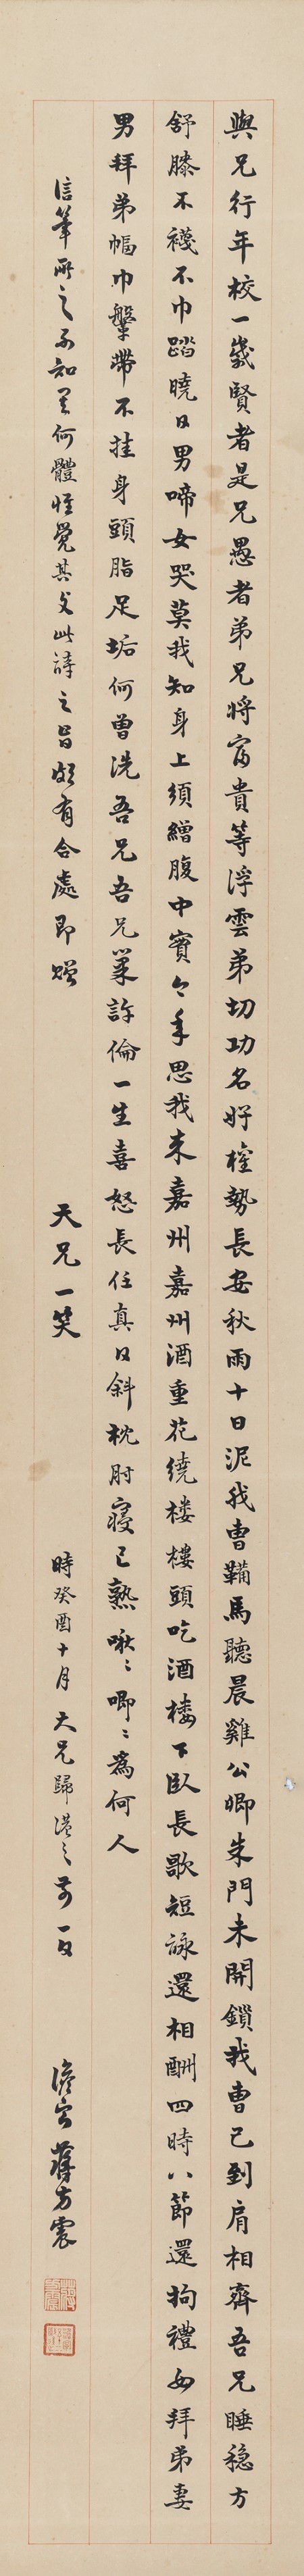 與兄行年校一歲賢者是兄愚者弟兄將富貴等浮雲弟切功名好權勢長安秋雨十日泥我曹鞴馬聽晨雞公卿朱門未開鎖我曹已到肩相齊吾兄睡穩方
舒膝不襪不巾踏曉日男啼女哭莫我知身上須繒腹中實今年思我來嘉州嘉州酒重花繞樓樓頭吃酒樓下臥長歌短詠還相酬四時八節還拘禮女拜弟妻
男拜弟幅巾鞶帶不挂身頭脂足垢何曾洗吾兄吾兄巢許倫一生喜怒長任真日斜枕肘寢已熟啾啾唧唧為何人
信筆所之不知是何體惟覺其與此詩之旨頗有合處即贈
天兄一笑
時癸酉十月大兄歸滬之前一日
蔣方震